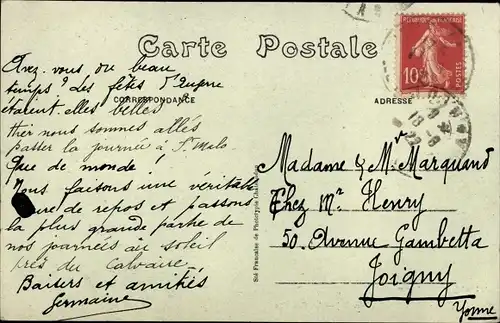 Carte Postale
CORRESPONDANCE
ADRESSE
Avez-vous du beau
temps? Les fêtes d'
étaient-elles belles
Hier nous sommes allés
passer la journée à St Malo
Que de monde!
Nous faisons une véritable
cure de repos et passons
la plus grande partie de
nos journées au soleil
près du Calvaire.
Baisers et amitiés
Germaine
Sté Française de Phototypie
10
POSTES
Madame & Mr Marquand
Chez Mr Henry
50, Avenue Gambetta
Joigny
Yonne